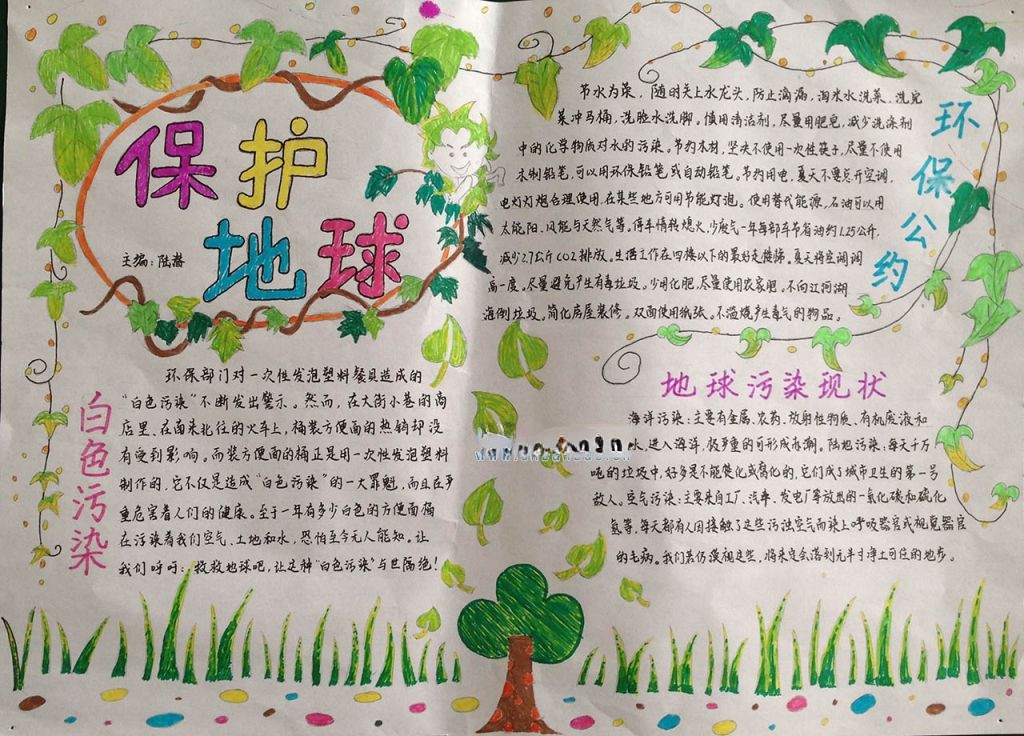 保护
地球
主编:陆潜
白色污染
环保部门对一次性发泡塑料餐具造成的
“白色污染”不断发出警示。然而,在大街小巷的商
店里,在南来北往的火车上,桶装方便面的热销却没
有受到影响。而装方便面的桶正是用一次性发泡塑料
制作的,它不仅是造成“白色污染”的一大罪魁,而且在严
重危害着人们的健康。至于一年有多少白色的方便面桶
在污染着我们空气、土地和水,恐怕至今无人能知。让
我们呼吁:救救地球吧,让这种“白色污染”与世隔绝!
环保公约
节水为荣,随时关上水龙头,防止滴漏,淘米水洗菜,洗完
菜冲马桶,洗脸水洗脚。慎用清洁剂,尽量用肥皂,减少洗涤剂
中的化学物质对水的污染。节约木材,坚决不使用一次性筷子,尽量不使用
木制铅笔,可以用环保铅笔或自动铅笔。节约用电,夏天不要总开空调,
电灯灯炮合理使用,在某些地方可用节能灯泡。使用替代能源,石油可以用
太能阳、风能与天然气等。停车情转熄火,少废气一年每部车节省油约1.25公斤,
减少2.7公斤CO2排放。生活工作在四楼以下的最好走楼梯。夏天将空调调
高一度。尽量避免产生有毒垃圾。少用化肥,尽量使用农家肥,不向江河湖
海倒垃圾。简化房屋装修。双面使用纸张。不燃烧产生毒气的物品。
地球污染现状
海洋污染:主要有金属、农药、放射性物质、有机废液和
水,进入海洋,较严重的可形成赤潮。陆地污染:每天千万
吨的垃圾中,好多是不能焚化或腐化的,它们成了城市卫生的第一号
敌人。空气污染:主要来自工厂、汽车、发电厂等放热的一氧化碳和硫化
氢等,每天都有人因接触了这些污浊空气而染上呼吸器官或视觉器官
的毛病。我们若仍漠视这些,将来定会落到无半寸净土可任的地步。